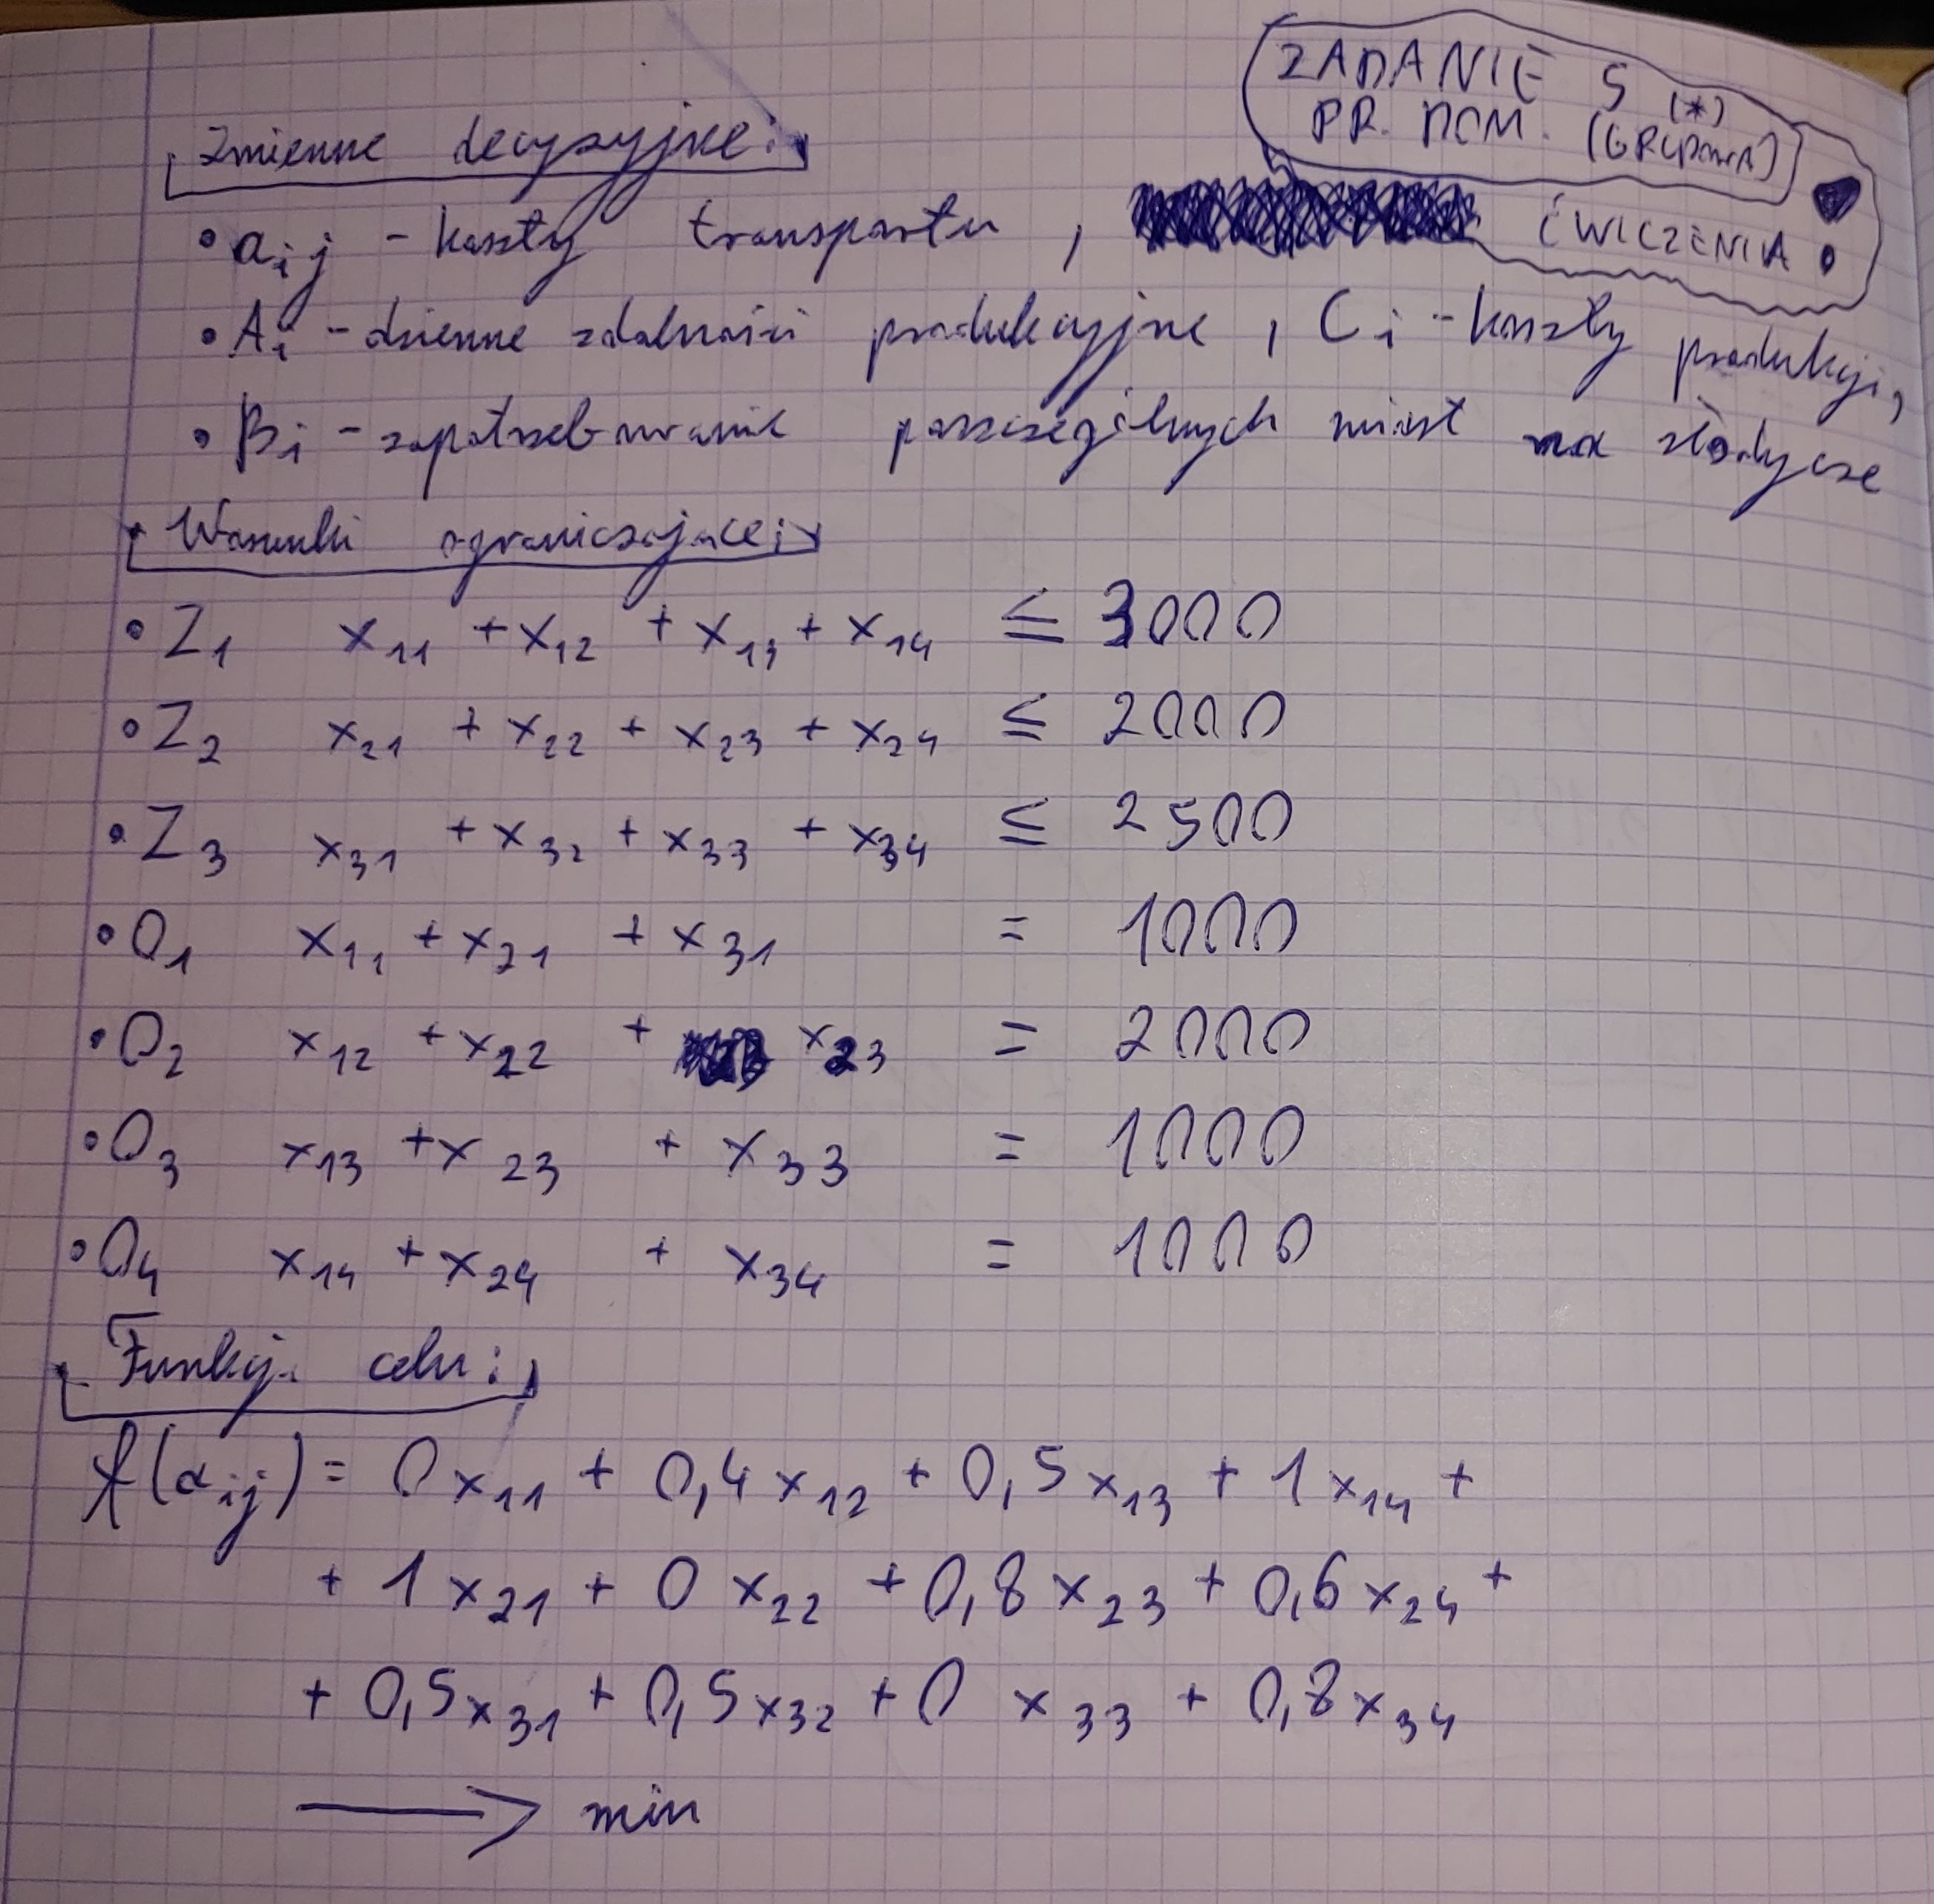 ZADANIE 5 (*)
PR. DOM. (GRUPOWA)
ĆWICZENIA
Zmienne decyzyjne:
• aij - koszty transportu,
• Ai - dzienne zdolności produkcyjne, Ci - koszty produkcji,
• Bi - zapotrzebowanie poszczególnych miast na słodycze
Warunki ograniczające:
• Z1 x11 + x12 + x13 + x14 ≤ 3000
• Z2 x21 + x22 + x23 + x24 ≤ 2000
• Z3 x31 + x32 + x33 + x34 ≤ 2500
• O1 x11 + x21 + x31 = 1000
• O2 x12 + x22 + x23 = 2000
• O3 x13 + x23 + x33 = 1000
• O4 x14 + x24 + x34 = 1000
Funkcja celu:
f(aij) = 0x11 + 0,4x12 + 0,5x13 + 1x14 +
+ 1x21 + 0x22 + 0,8x23 + 0,6x24 +
+ 0,5x31 + 0,5x32 + 0x33 + 0,8x34
→ min